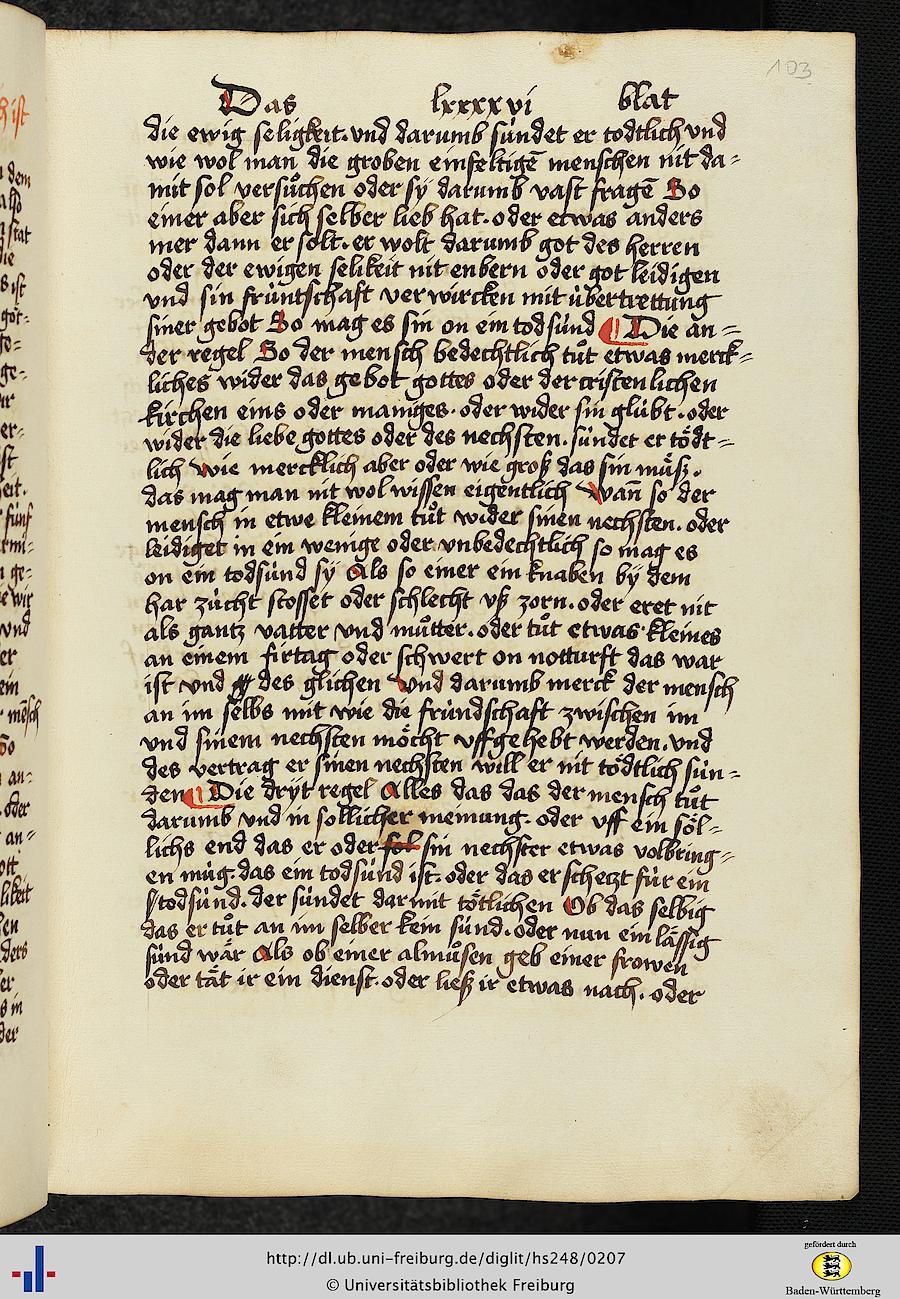 103
Das lxxxxvi blat
die ewig seligkeit. vnd darumb sündet er todtlich vnd
wie wol man die groben einfeltigē menschen nit da=
mit sol versůchen oder sy darumb vast fragē So
einer aber sich selber lieb hat. oder etwas anders
mer dann er solt. er wolt darumb got des herren
oder der ewigen selikeit nit enbern oder got leidigen
vnd sin früntschaft verwircken mit übertrettung
siner gebot So mag es sin on ein todsünd ¶ Die an=
der regel So der mensch bedechtlich tůt etwas merck=
liches wider das gebot gottes oder der cristenlichen
kirchen eins oder maniges. oder wider sin glübt. oder
wider die liebe gottes oder des nechsten. sündet er tödt=
lich Wie mercklich aber oder wie groß das sin mäß.
das mag man nit wol wissen eigentlich Wañ so der
mensch in etwe kleinem tůt wider sinen nechsten. oder
leidiget in ein wenige oder vnbedechtlich so mag es
on ein todsünd sy Als so einer ein knaben by dem
har zücht stosset oder schlecht vß zorn. oder eret nit
als gantz vatter vnd můtter. oder tůt etwas kleines
an einem firtag oder schwert on notturft das war
ist vnd des glichen Vnd darumb merck der mensch
an im selbs mit wie die fründschaft zwischen im
vnd sinem nechsten möcht vffgehebt werden. vnd
des vertrag er sinen nechsten will er nit tödtlich sün=
den ¶ Die dryt regel Alles das das der mensch tůt
darumb vnd in sollicher meinung. oder vff ein söl=
lichs end das er oder sol sin nechster etwas volbring=
en müg. das ein todsünd ist. oder das er schetzt für ein
todsünd. der sündet darmit tötlichen Ob das selbig
das er tůt an im selber kein sünd. oder nun ein lässig
sünd wär Als ob einer almůsen geb einer frowen
oder tät ir ein dienst. oder ließ ir etwas nach. oder
http://dl.ub.uni-freiburg.de/diglit/hs248/0207
© Universitätsbibliothek Freiburg
gefördert durch
Baden-Württemberg